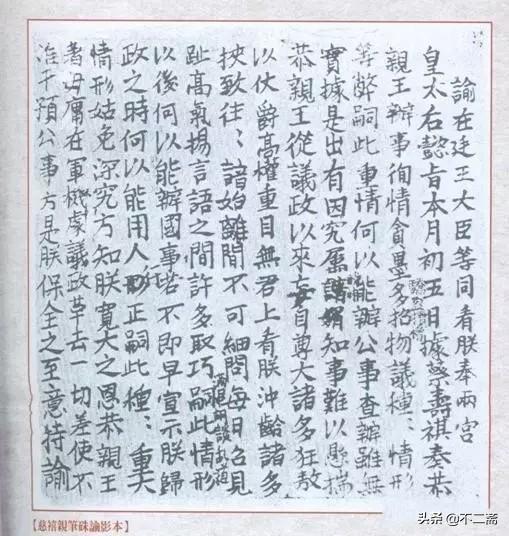 諭在廷王大臣等同看朕奉兩宮
皇太后懿旨本月初五日據蔡壽祺奏恭
親王辦事徇情貪墨多招物議種〻情形
等弊嗣此重情何以能辦公事查辦雖無
實據是出有因究屬知事難以懸揣
恭親王從議政以來妄自尊大諸多狂敖
以仗爵高權重目無君上看朕沖齡諸多
挾致往〻諳始離間不可細問每日召見
趾高氣揚言語之間許多取巧嗣此情形
以後何以能辦國事若不即早宣示朕歸
政之時何以能用人行正嗣此種〻重大
情形姑免深究方知朕寬大之恩恭親王
著毋庸在軍機處議政革去一切差使不
准干預公事方是朕保全之至意特諭
【慈禧親筆硃諭影本】
头条 @不二斋